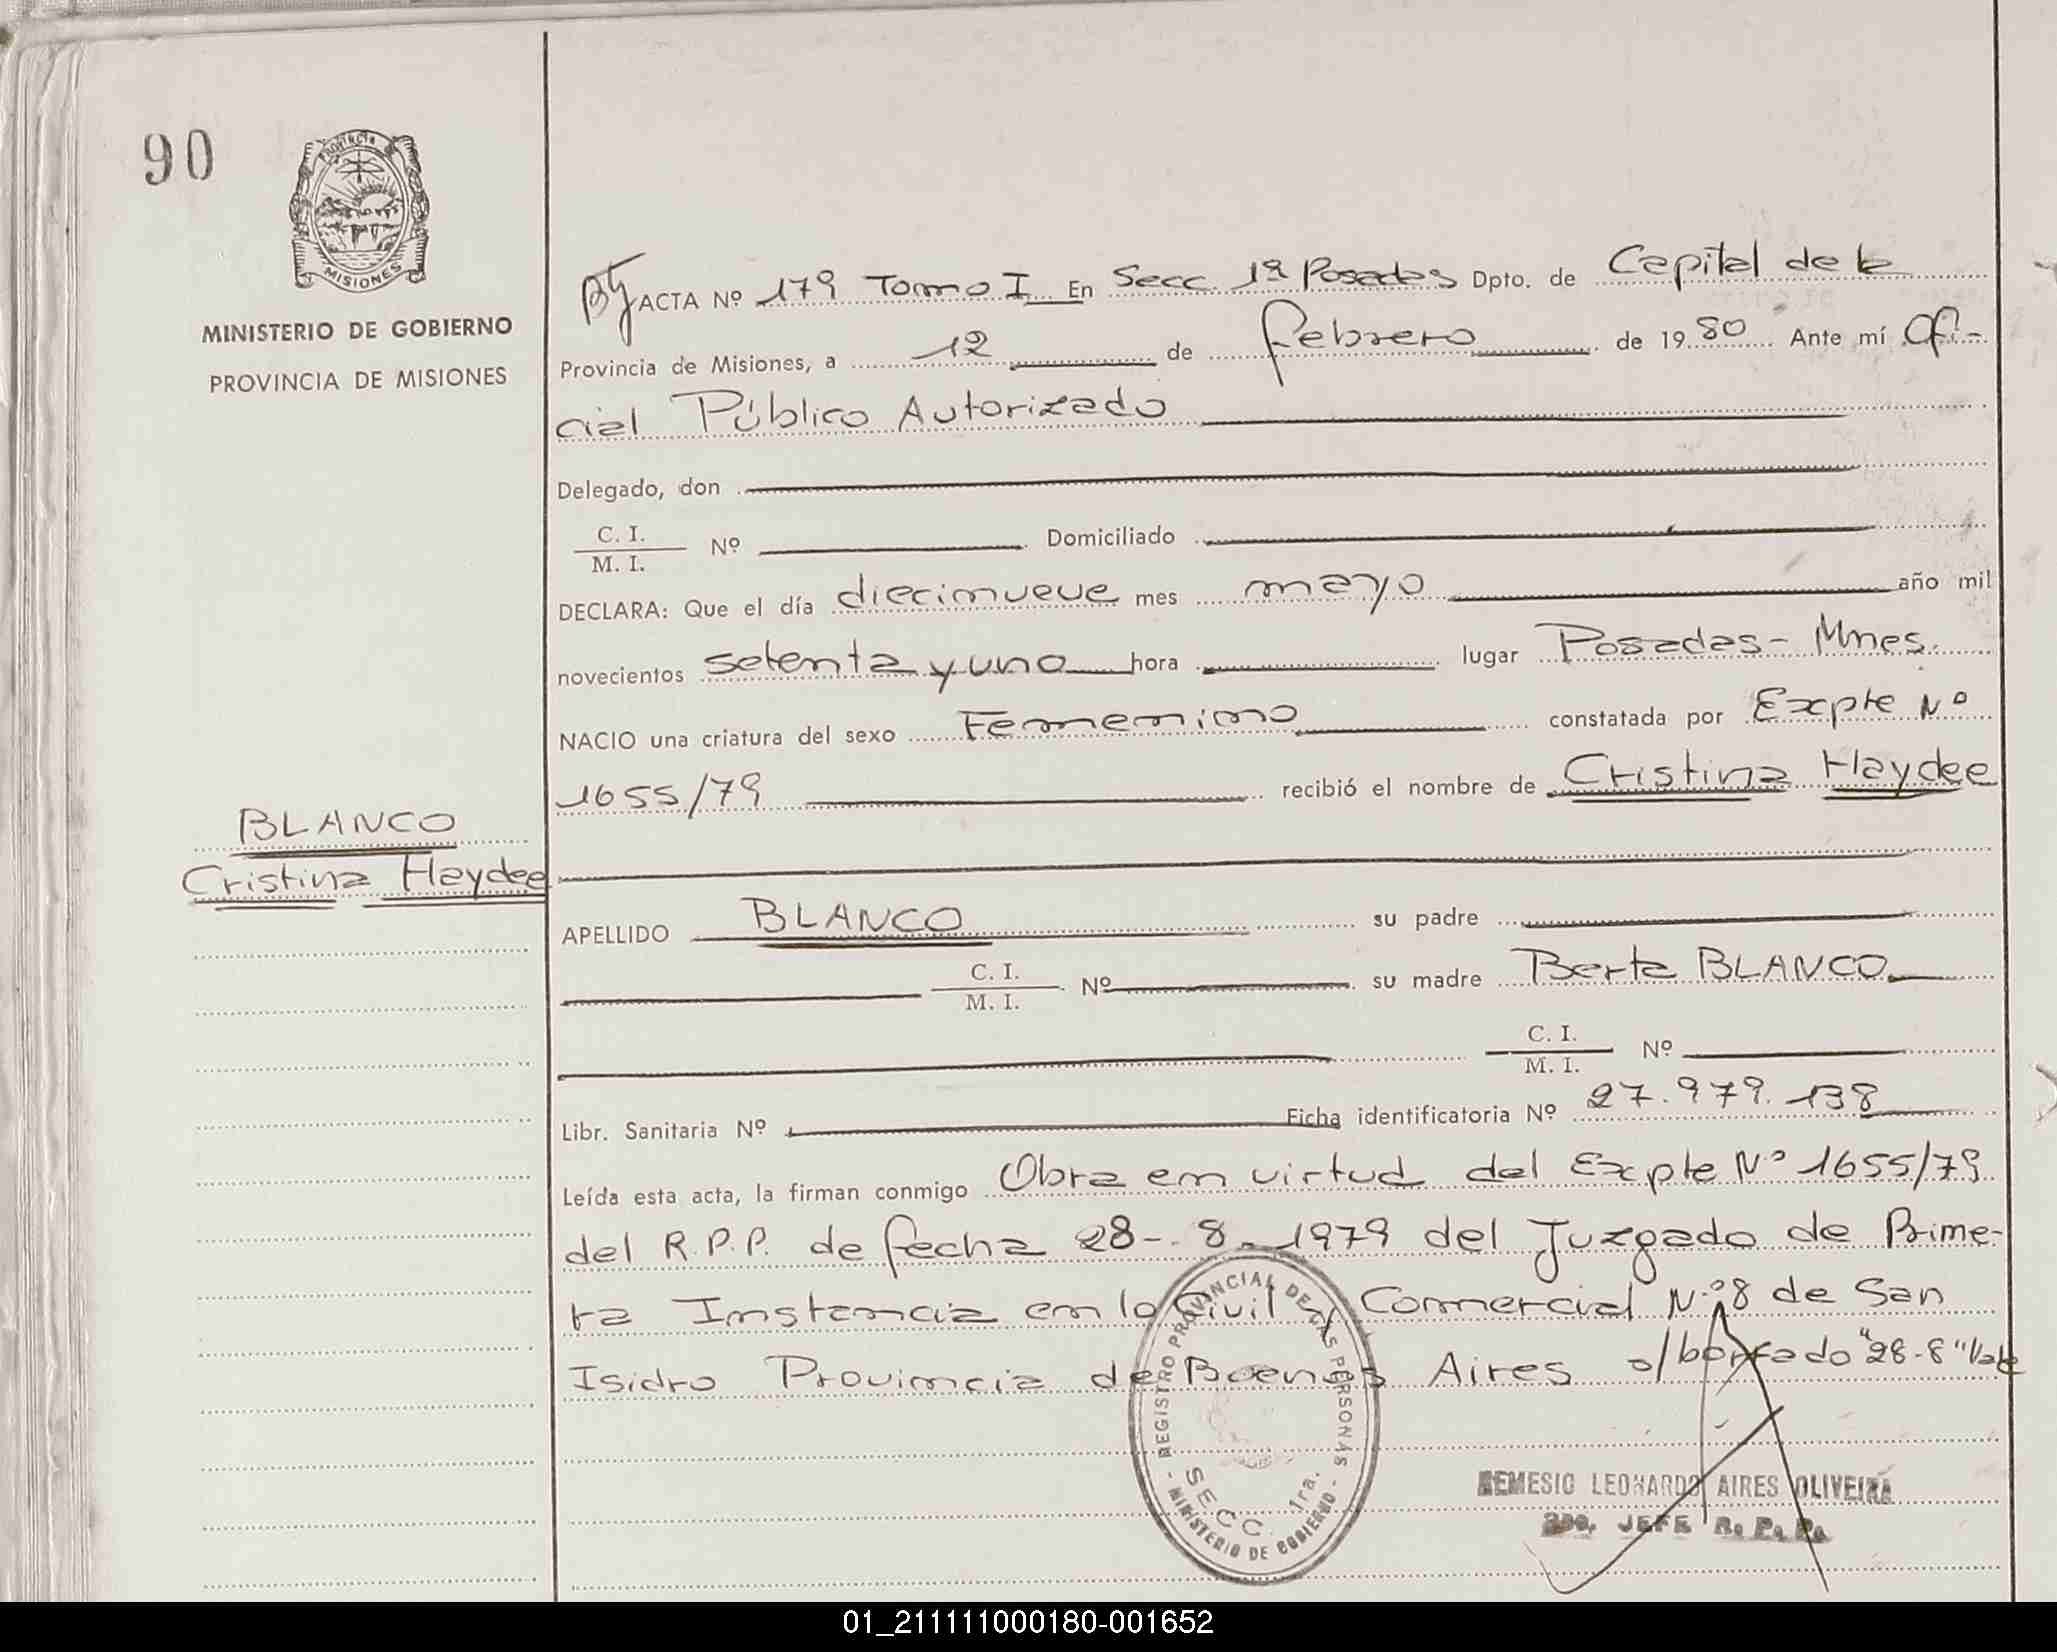 90
PROVINCIA
MISIONES
MINISTERIO DE GOBIERNO
PROVINCIA DE MISIONES
ACTA Nº 179 Tomo I En Secc. 1ª Posadas Dpto. de Capital de la
Provincia de Misiones, a 12 de febrero de 1980 Ante mí Ofi-
cial Público Autorizado
Delegado, don
C. I.
M. I. Nº Domiciliado
DECLARA: Que el día diecinueve mes mayo año mil
novecientos setenta y uno hora lugar Posadas - Mnes.
NACIO una criatura del sexo Femenino constatada por Expte Nº
1655/79 recibió el nombre de Cristina Haydee
BLANCO
Cristina Haydee
APELLIDO BLANCO su padre
C. I.
M. I. Nº su madre Berta BLANCO
C. I.
M. I. Nº
Libr. Sanitaria Nº Ficha identificatoria Nº 27.979.138
Leída esta acta, la firman conmigo Obra en virtud del Expte Nº 1655/79
del R.P.P. de fecha 28-8-1979 del Juzgado de Prime-
ra Instancia en lo Civil y Comercial Nº 8 de San
Isidro Provincia de Buenos Aires o/borrado "28-8" Vale
REGISTRO PROVINCIAL DE LAS PERSONAS
SECC. 1ra.
- MINISTERIO DE GOBIERNO -
NEMESIO LEONARDO AIRES OLIVEIRA
2DO. JEFE R. P. P.
01_211111000180-001652